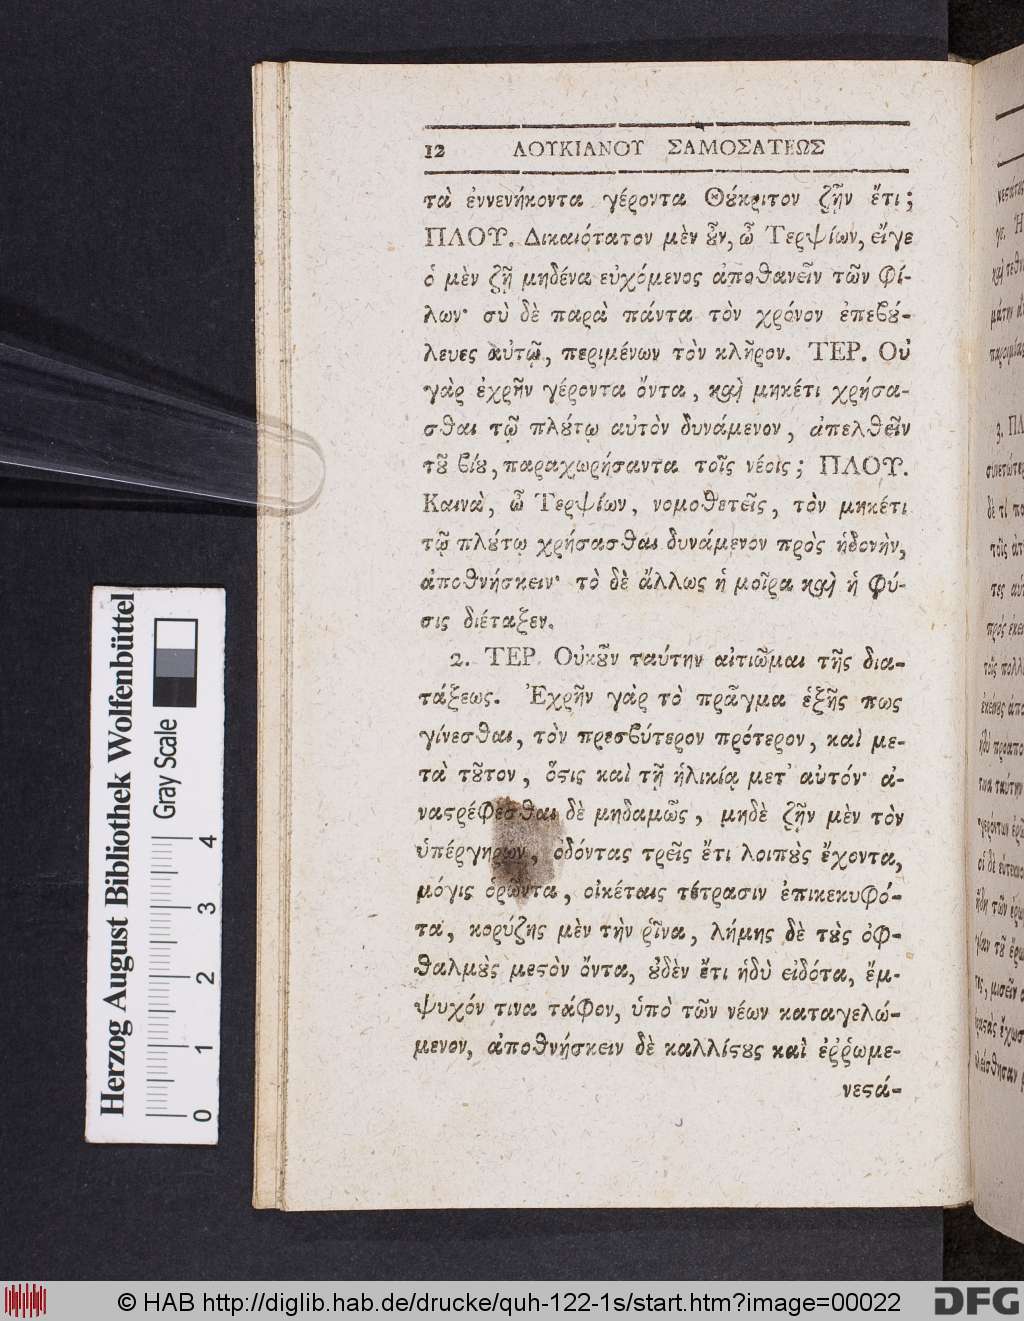 12 ΛΟΥΚΙΑΝΟΥ ΣΑΜΟΣΑΤΕΩΣ
τὰ ἐννενήκοντα γέροντα Θȣ́κριτον ζῆν ἔτι;
ΠΛΟΥ. Δικαιότατον μὲν ȣ̓͂ν, ὦ Τερψίων, εἴγε
ὁ μὲν ζῇ μηδένα εὐχόμενος ἀποθανεῖν τῶν φί-
λων· σὺ δὲ παρὰ πάντα τὸν χρόνον ἐπεβȣ́-
λευες αὐτῷ, περιμένων τὸν κλῆρον. ΤΕΡ. Οὐ
γὰρ ἐχρῆν γέροντα ὄντα, καὶ μηκέτι χρήσα-
σθαι τῷ πλȣ́τῳ αὐτὸν δυνάμενον, ἀπελθεῖν
τȣ͂ βίȣ, παραχωρήσαντα τοῖς νέοις; ΠΛΟΥ.
Καινὰ, ὦ Τερψίων, νομοθετεῖς, τὸν μηκέτι
τῷ πλȣ́τῳ χρήσασθαι δυνάμενον πρὸς ἡδονὴν,
ἀποθνήσκειν· τὸ δὲ ἄλλως ἡ μοῖρα καὶ ἡ φύ-
σις διέταξεν.
2. ΤΕΡ. Οὐκȣ͂ν ταύτην αἰτιῶμαι τῆς δια-
τάξεως. Ἐχρῆν γὰρ τὸ πρᾶγμα ἑξῆς πως
γίνεσθαι, τὸν πρεσβύτερον πρότερον, καὶ με-
τὰ τȣ͂τον, ὅϛις καὶ τῇ ἡλικίᾳ μετ' αὐτόν· ἀ-
ναϛρέφεσθαι δὲ μηδαμῶς, μηδὲ ζῆν μὲν τὸν
ὑπέργηρων, ὀδόντας τρεῖς ἔτι λοιπȣ̀ς ἔχοντα,
μόγις ὁρῶντα, οἰκέταις τέτρασιν ἐπικεκυφό-
τα, κορύζης μὲν τὴν ῥῖνα, λήμης δὲ τȣ̀ς ὀφ-
θαλμȣ̀ς μεϛὸν ὄντα, ȣ̓δὲν ἔτι ἡδὺ εἰδότα, ἔμ-
ψυχόν τινα τάφον, ὑπὸ τῶν νέων καταγελώ-
μενον, ἀποθνήσκειν δὲ καλλίϛȣς καὶ ἐῤῥωμε-
νεϛά-
Herzog August Bibliothek Wolfenbüttel
Gray Scale
0 1 2 3 4
© HAB http://diglib.hab.de/drucke/quh-122-1s/start.htm?image=00022
DFG